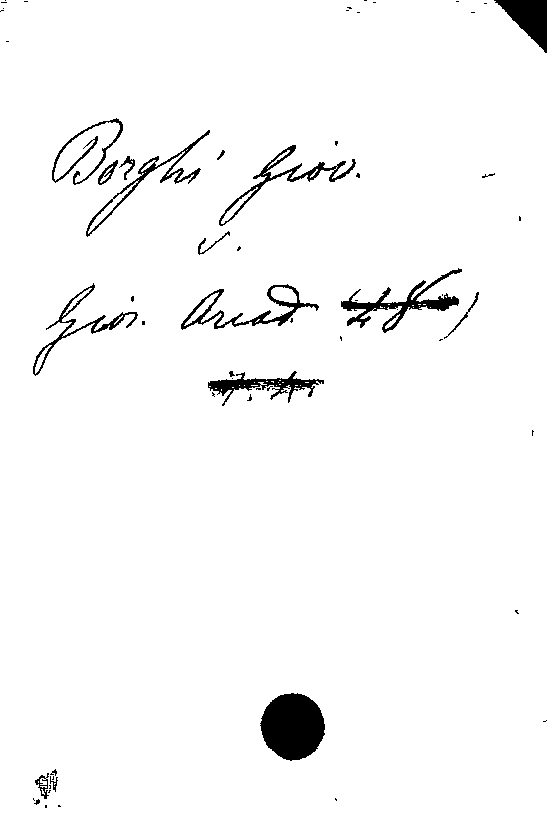 Borghi Giov.
v.
Gior. Arcad. 48)